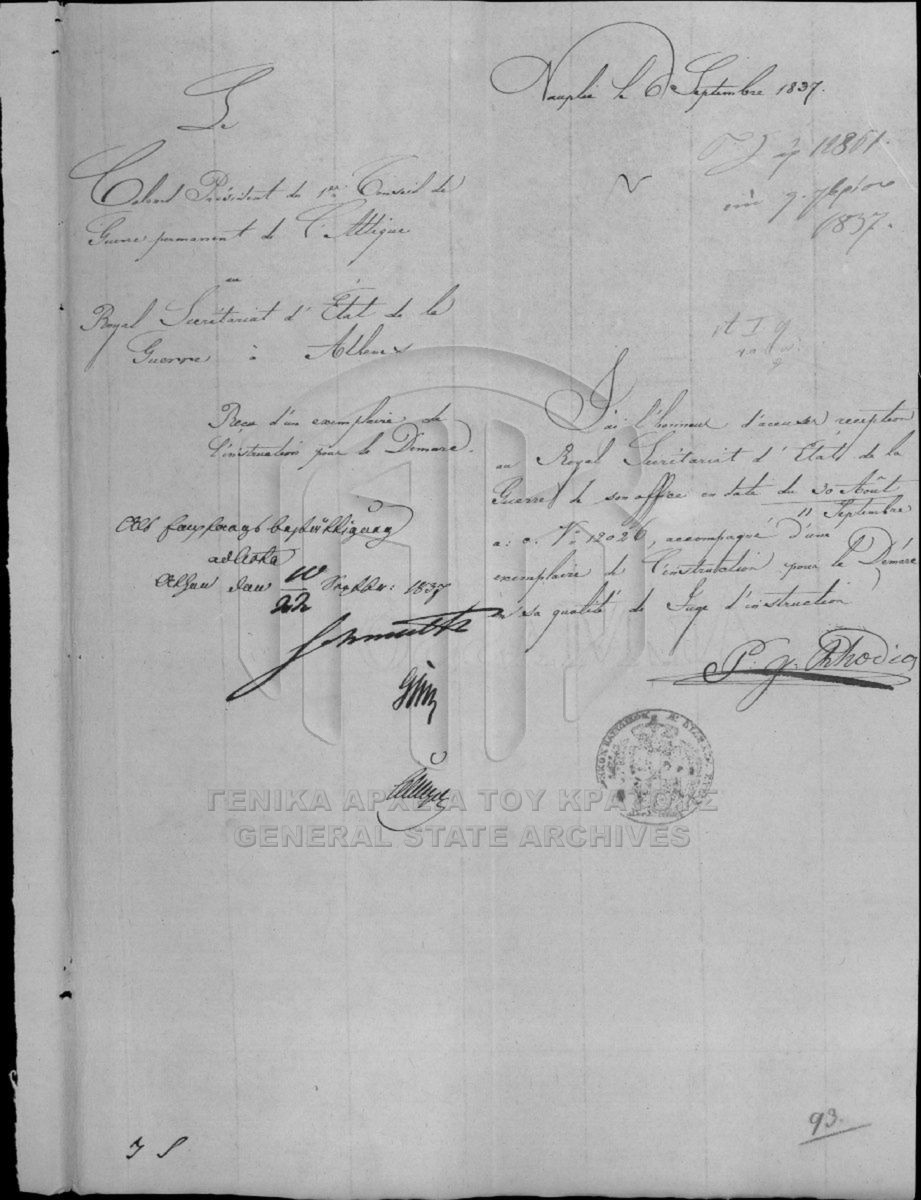 Nauplie le 6 Septembre 1837.
Le
Colonel Président du 1er Conseil de
Guerre permanent de l'Attique
au
Royal Secrétariat d'État de la
Guerre à Athènes
12861.
1837.
Reçu d'un exemplaire de
l'instruction pour le Démare.
J'ai l'honneur d'accuser reception
au Royal Secrétariat d'État de la
Guerre de son office en date du 30 Août
11 Septembre
a: c. No 12026, accompagné d'une
exemplaire de l'instruction pour le Démare
en sa qualité de Juge d'instruction
P. G. Rhodio
Als Empfangsbestätigung
ad acta
Athen den 10/22 Septbr: 1837
ΓΕΝΙΚΑ ΑΡΧΕΙΑ ΤΟΥ ΚΡΑΤΟΥΣ
GENERAL STATE ARCHIVES
93.